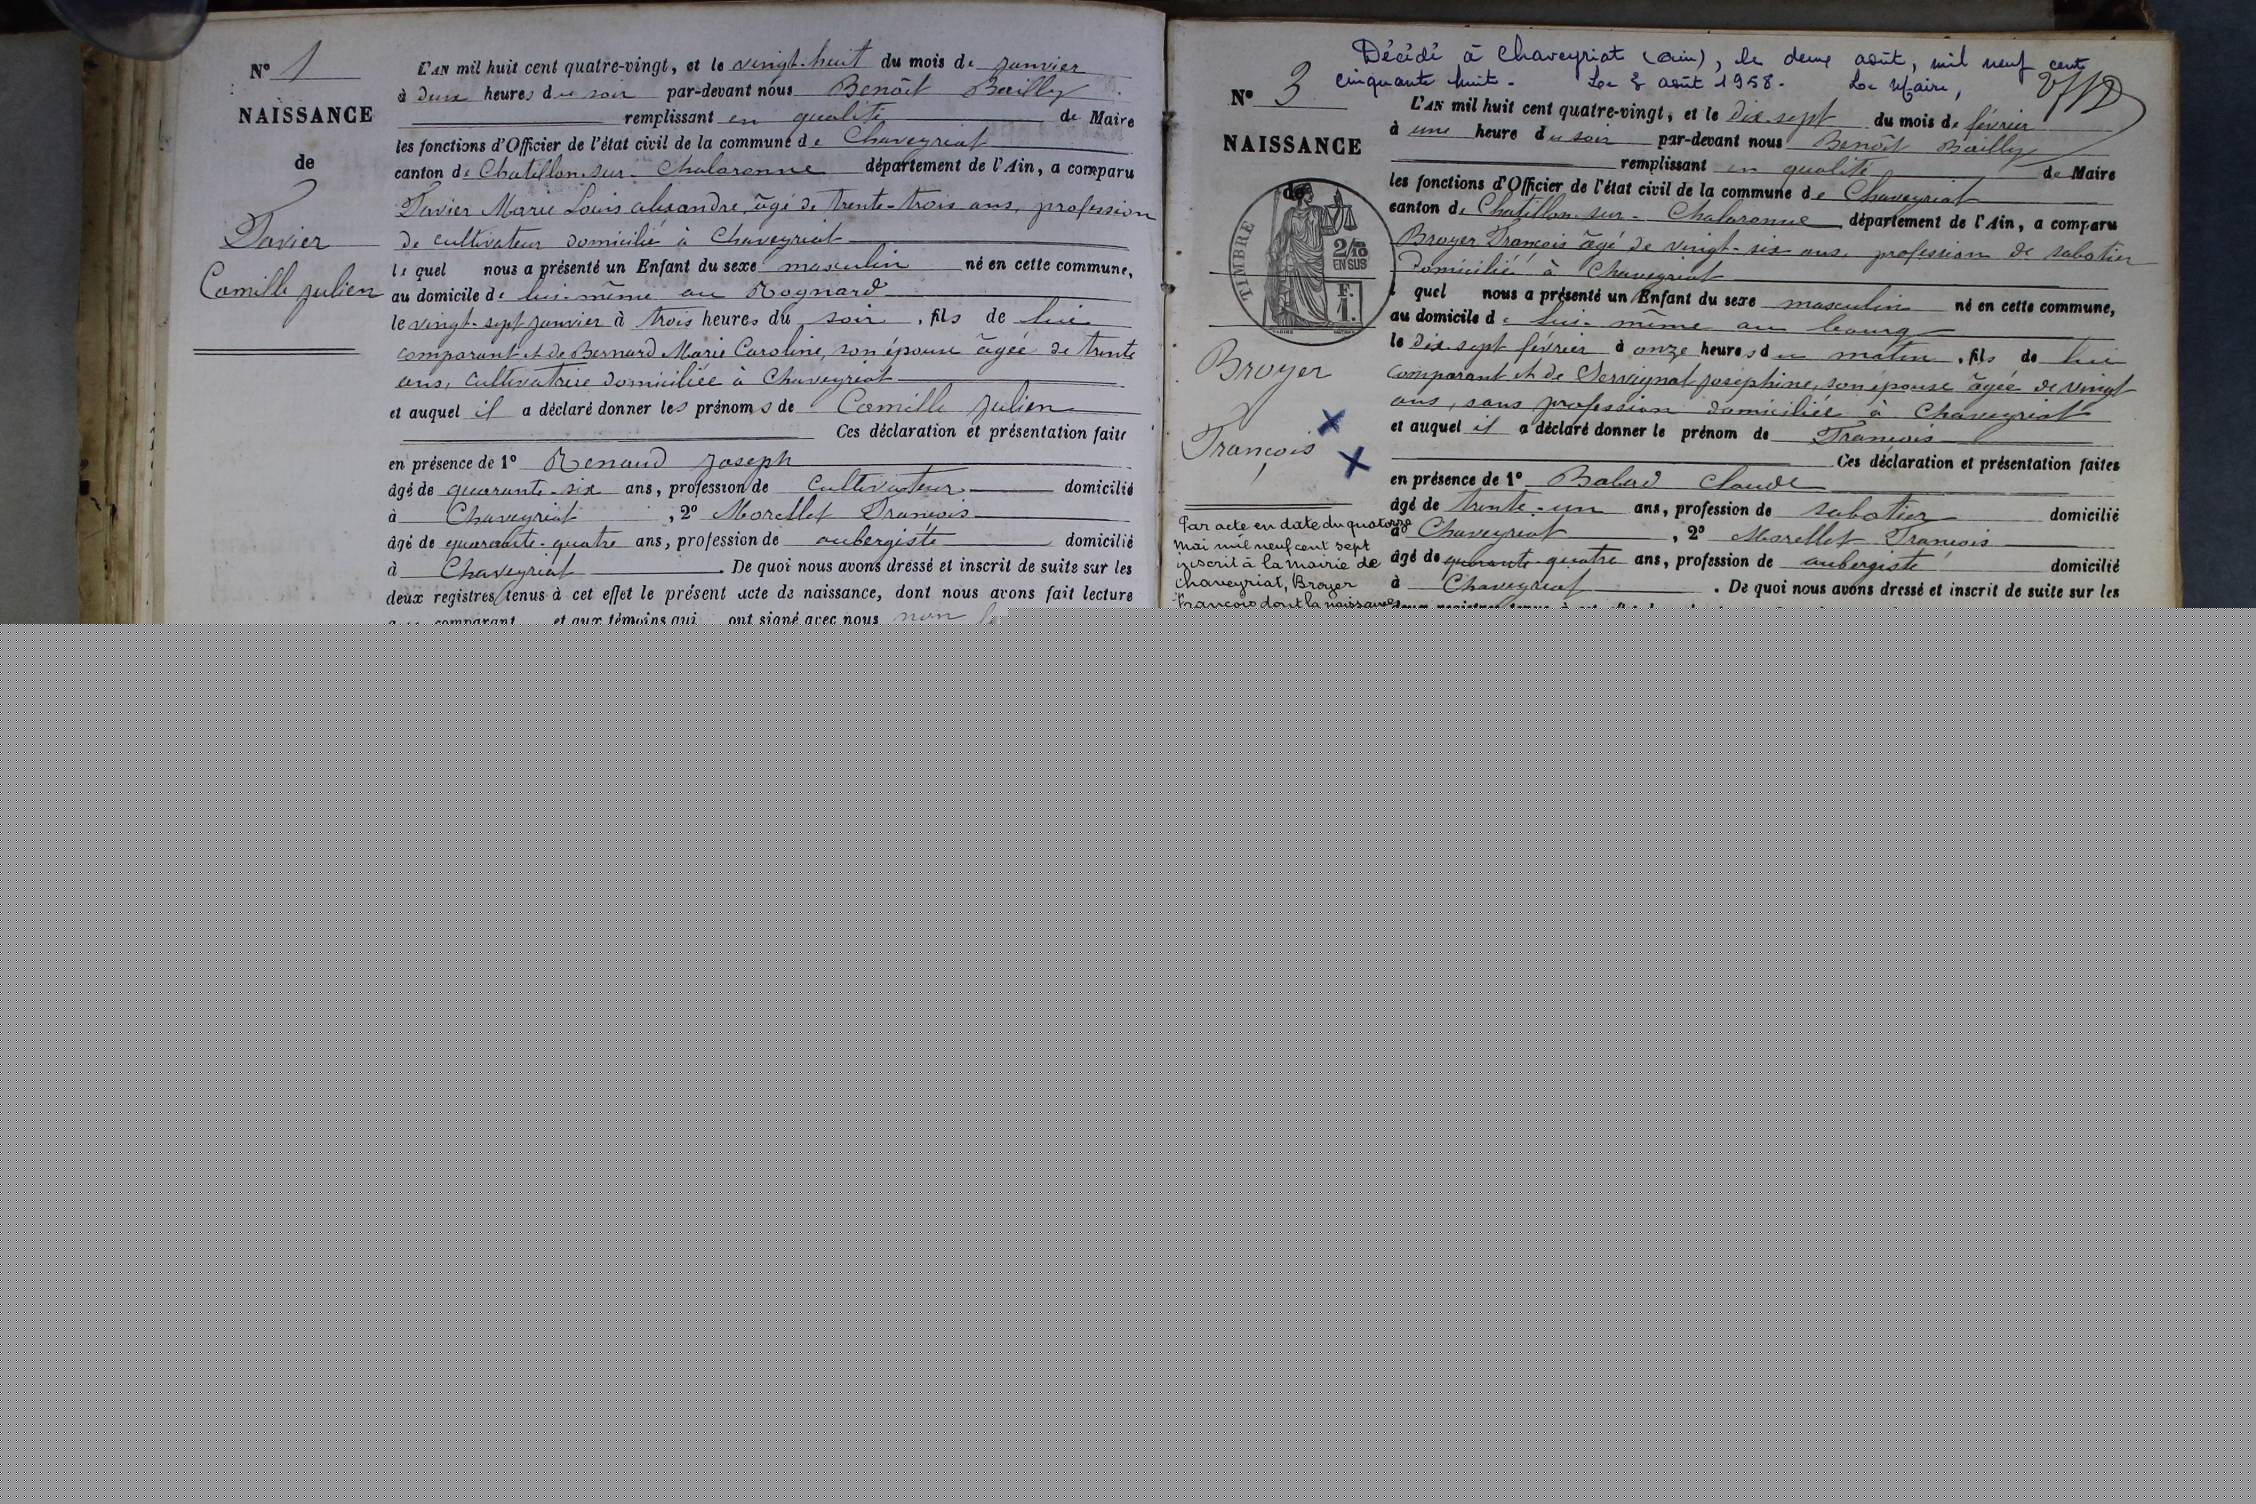 N° 1
NAISSANCE
de
Favier
Camille Julien
L'AN mil huit cent quatre-vingt, et le vingt-huit du mois de janvier
à deux heures du soir par-devant nous Benoît Bailly
remplissant en qualité de Maire
les fonctions d'Officier de l'état civil de la commune de Chaveyriat
canton de Chatillon-sur-Chalaronne département de l'Ain, a comparu
Favier Marie Louis alexandre, âgé de trente-trois ans, profession
de cultivateur domicilié à Chaveyriat
lequel nous a présenté un Enfant du sexe masculin né en cette commune,
au domicile de lui-même au Rognard
le vingt-sept janvier à trois heures du soir, fils de lui
comparant et de Bernard Marie Caroline, son épouse âgée de trente
ans, cultivatrice domiciliée à Chaveyriat
et auquel il a déclaré donner les prénoms de Camille Julien
Ces déclaration et présentation faite
en présence de 1° Renaud Joseph
âgé de quarante-six ans, profession de cultivateur domicilié
à Chaveyriat, 2° Morellet François
âgé de quarante-quatre ans, profession de aubergiste domicilié
à Chaveyriat. De quoi nous avons dressé et inscrit de suite sur les
deux registres tenus à cet effet le présent acte de naissance, dont nous avons fait lecture
comparant et aux témoins qui ont signé avec nous non
Décédé à Chaveyriat (Ain), le deux août, mil neuf cent
cinquante huit. Le 2 août 1958. Le Maire,
N° 3
NAISSANCE
de
TIMBRE
2/10
EN SUS
F.
1.
Broyer
François
L'AN mil huit cent quatre-vingt, et le dix-sept du mois de février
à une heure du soir par-devant nous Benoît Bailly
remplissant en qualité de Maire
les fonctions d'Officier de l'état civil de la commune de Chaveyriat
canton de Chatillon-sur-Chalaronne département de l'Ain, a comparu
Broyer François âgé de vingt-six ans, profession de sabotier
domicilié à Chaveyriat
quel nous a présenté un Enfant du sexe masculin né en cette commune,
au domicile de lui-même au bourg
le dix-sept février à onze heures du matin, fils de lui
comparant et de Servignat Joséphine, son épouse âgée de vingt
ans, sans profession domiciliée à Chaveyriat
et auquel il a déclaré donner le prénom de François
Ces déclaration et présentation faites
en présence de 1° Balard Claude
âgé de trente-un ans, profession de sabotier domicilié
à Chaveyriat, 2° Morellet François
âgé de quarante-quatre ans, profession de aubergiste domicilié
à Chaveyriat. De quoi nous avons dressé et inscrit de suite sur les
Par acte en date du quatorze
mai mil neuf cent sept
inscrit à la mairie de
Chaveyriat, Broyer
François dont la naissance